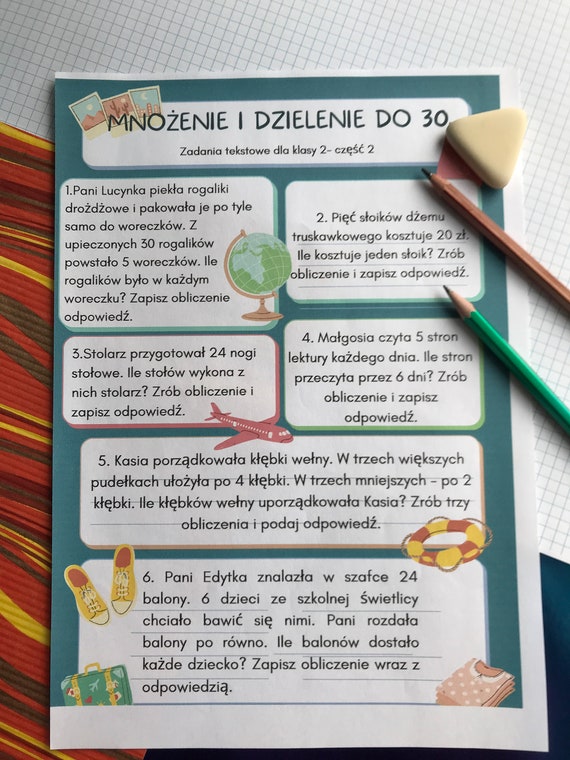 MNOŻENIE I DZIELENIE DO 30
Zadania tekstowe dla klasy 2- część 2
1.Pani Lucynka piekła rogaliki
drożdżowe i pakowała je po tyle
samo do woreczków. Z
upieczonych 30 rogalików
powstało 5 woreczków. Ile
rogalików było w każdym
woreczku? Zapisz obliczenie
odpowiedź.
2. Pięć słoików dżemu
truskawkowego kosztuje 20 zł.
Ile kosztuje jeden słoik? Zrób
obliczenie i zapisz odpowiedź.
3.Stolarz przygotował 24 nogi
stołowe. Ile stołów wykona z
nich stolarz? Zrób obliczenie i
zapisz odpowiedź.
4. Małgosia czyta 5 stron
lektury każdego dnia. Ile stron
przeczyta przez 6 dni? Zrób
obliczenie i zapisz
odpowiedź.
5. Kasia porządkowała kłębki wełny. W trzech większych
pudełkach ułożyła po 4 kłębki. W trzech mniejszych - po 2
kłębki. Ile kłębków wełny uporządkowała Kasia? Zrób trzy
obliczenia i podaj odpowiedź.
6. Pani Edytka znalazła w szafce 24
balony. 6 dzieci ze szkolnej świetlicy
chciało bawić się nimi. Pani rozdała
balony po równo. Ile balonów dostało
każde dziecko? Zapisz obliczenie wraz z
odpowiedzią.